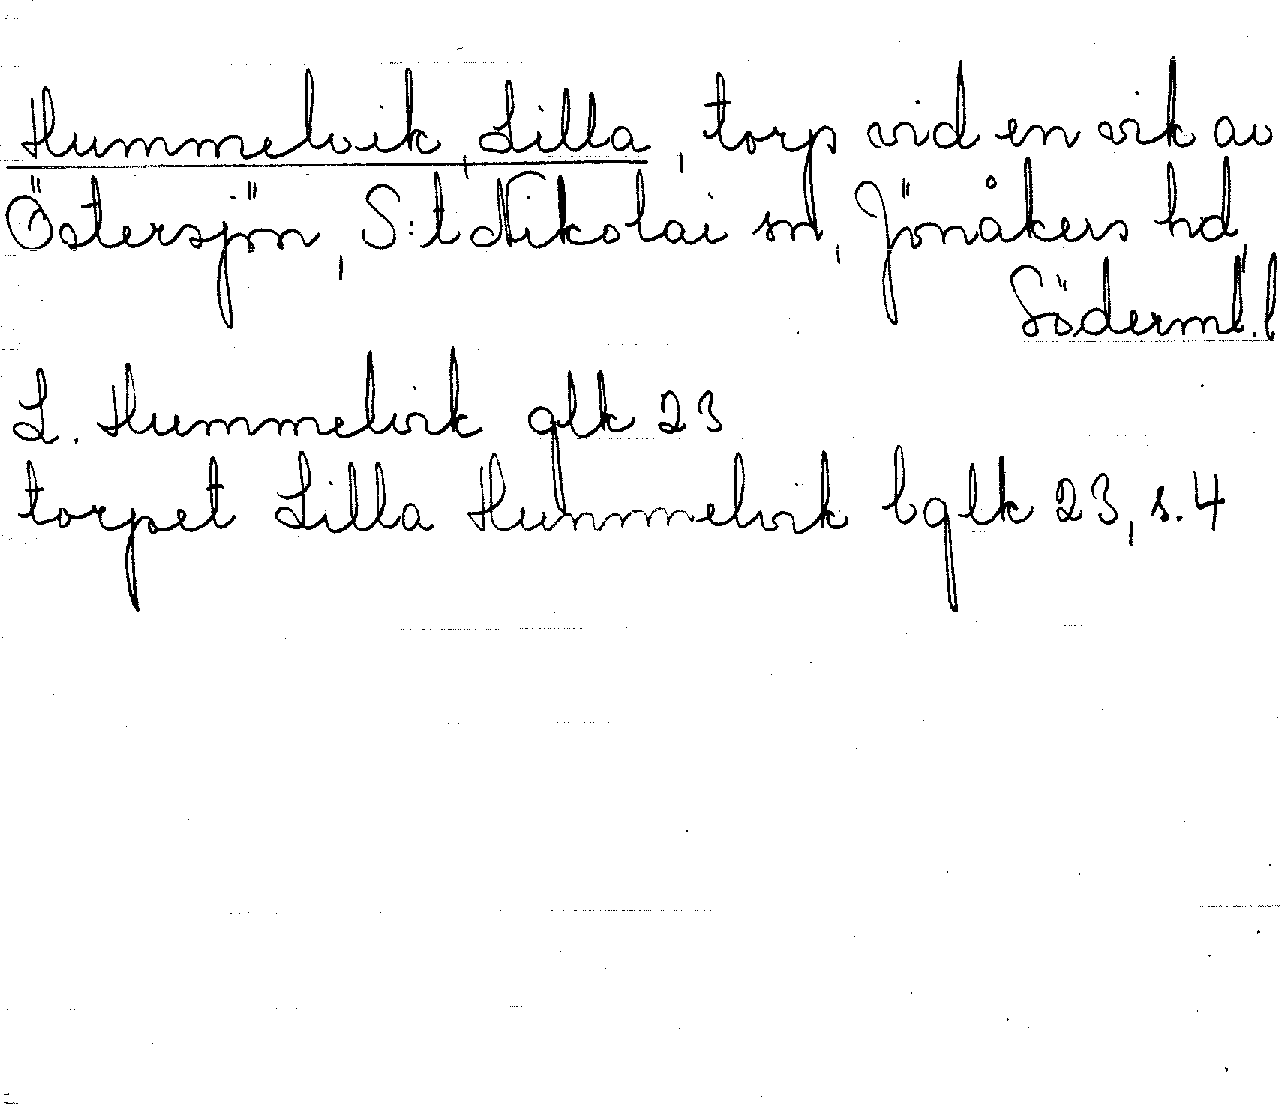 Hummelvik, Lilla, torp vid en vik av
Östersjön, S:t Nikolai sn, Jönåkers hd,
Söderml. l
L. Hummelvik glk 23
torpet Lilla Hummelvik bglk 23, s. 4